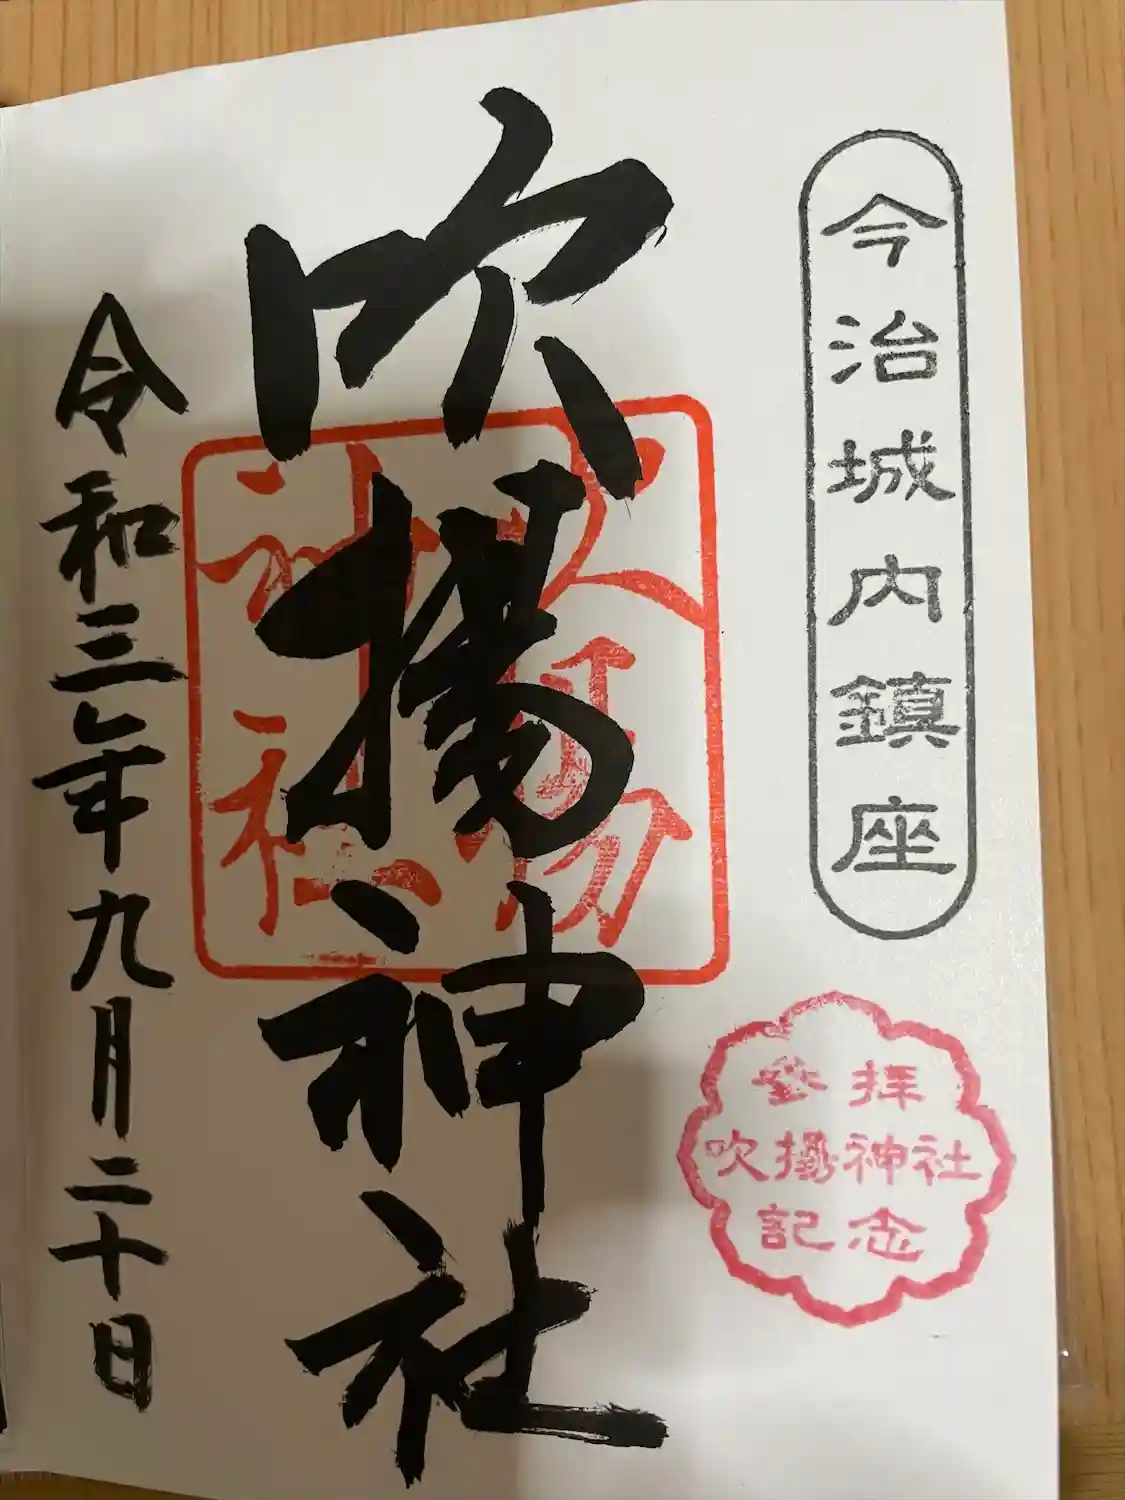 今治城内鎮座
吹揚神社
吹揚
神社
參拝
吹揚神社
記念
令和三年九月二十日